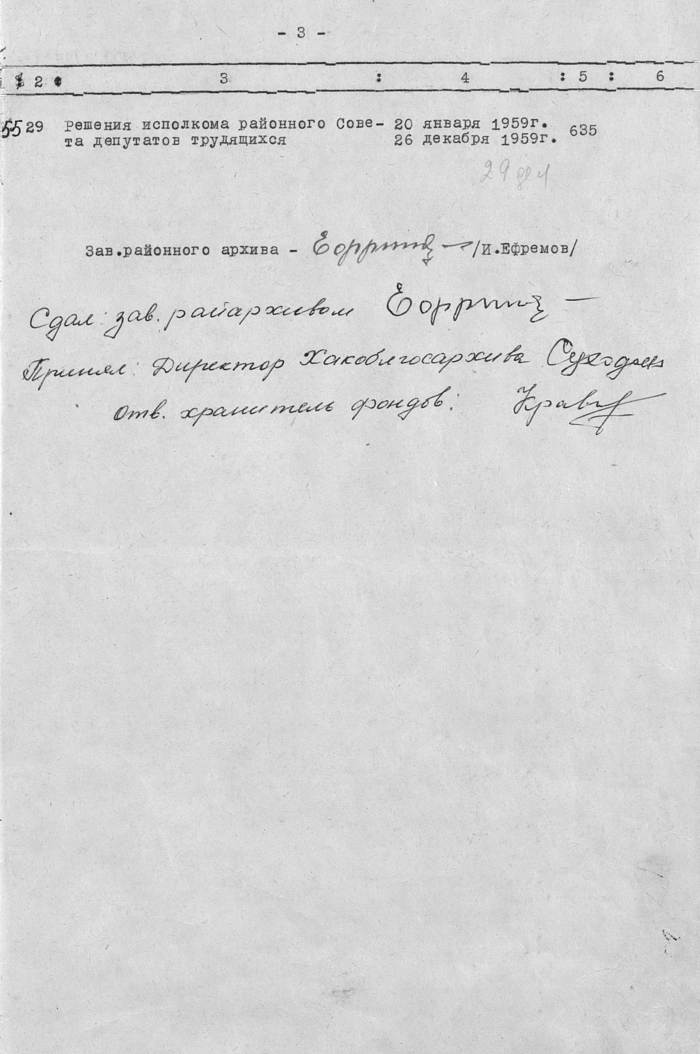 - 3 -
2 : 3 : 4 : 5 : 6
55 29 Решения исполкома районного Сове- 20 января 1959г. 635
та депутатов трудящихся 26 декабря 1959г.
29 дел
Зав.районного архива - /И.Ефремов/
Сдал: зав. райархивом
Принял: Директор Хакоблгосархива
Отв. хранитель фондов: